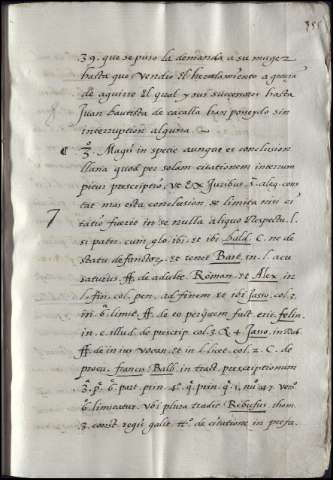 355
39. que se puso la demanda a su muger
hasta que vendio el heredamiento a garcia
de aguirre el qual y sus successores hasta
Juan bautista de cacalla han poseydo sin
interruption alguna.
¶ 3. Magis in specie aunque es conclusion
llana quod per solam citationem interrum
pitur prescriptio, ut ex Juribus s. aleg. cons
tat mas esta conclusion se limita nisi ci
tatio fuerit in se nulla aliquo respectu. l.
7 si pater. cum glo. ibi. et ibi Bald. C. ne de
statu defunctor. et tenet Bart. in. l. accu
saturus. ff. de adulte. Roman. et Alex. in
l. fin. col. pen. ad finem et ibi Jaso. col. 3.
in. 6. limit. ff. de eo per quem fact. erit. felin.
in. c. illud. de prescrip. col. 3. & 4 Jaso.
ff. de in ius vocan. et in l. licet. col. 2. C. de
procu. francis. Bald. in tract. prescriptionum
3. p. 6. part. prin. 4. q. prin. q. 1. nu. 47. vers.
6. limitatur. ubi plura tradit Rebuffus. thom.
3. const. regu. galie tt.º de citatione in prefa.